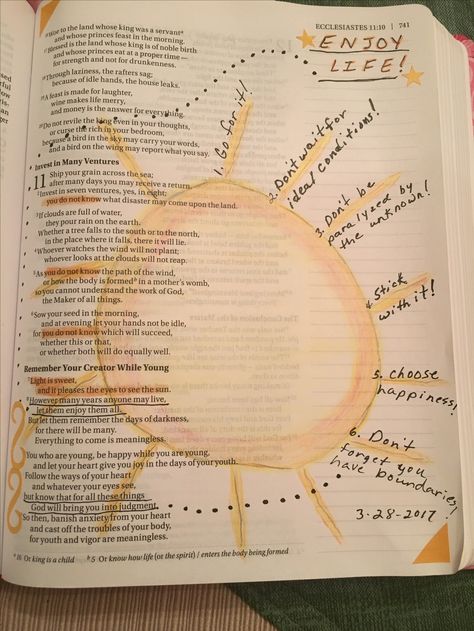 ECCLESIASTES 11:10 | 741
ENJOY
LIFE!
16 Woe to the land whose king was a servant a
and whose princes feast in the morning.
17 Blessed is the land whose king is of noble birth
and whose princes eat at a proper time—
for strength and not for drunkenness.
18 Through laziness, the rafters sag;
because of idle hands, the house leaks.
19 A feast is made for laughter,
wine makes life merry,
and money is the answer for everything.
20 Do not revile the king even in your thoughts,
or curse the rich in your bedroom,
because a bird in the sky may carry your words,
and a bird on the wing may report what you say.
Invest in Many Ventures
11 Ship your grain across the sea;
after many days you may receive a return.
2 Invest in seven ventures, yes, in eight;
you do not know what disaster may come upon the land.
3 If clouds are full of water,
they pour rain on the earth.
Whether a tree falls to the south or to the north,
in the place where it falls, there it will lie.
4 Whoever watches the wind will not plant;
whoever looks at the clouds will not reap.
5 As you do not know the path of the wind,
or how the body is formed b in a mother's womb,
so you cannot understand the work of God,
the Maker of all things.
6 Sow your seed in the morning,
and at evening let your hands not be idle,
for you do not know which will succeed,
whether this or that,
or whether both will do equally well.
Remember Your Creator While Young
7 Light is sweet,
and it pleases the eyes to see the sun.
8 However many years anyone may live,
let them enjoy them all.
But let them remember the days of darkness,
for there will be many.
Everything to come is meaningless.
9 You who are young, be happy while you are young,
and let your heart give you joy in the days of your youth.
Follow the ways of your heart
and whatever your eyes see,
but know that for all these things
God will bring you into judgment.
10 So then, banish anxiety from your heart
and cast off the troubles of your body,
for youth and vigor are meaningless.
a 16 Or king is a child b 5 Or know how life (or the spirit) / enters the body being formed
1. Go for it!
2. Don't wait for
ideal conditions!
3. Don't be
paralyzed by
the unknown!
4. Stick
with it!
5. choose
happiness!
6. Don't
forget you
have boundaries!
3-28-2017